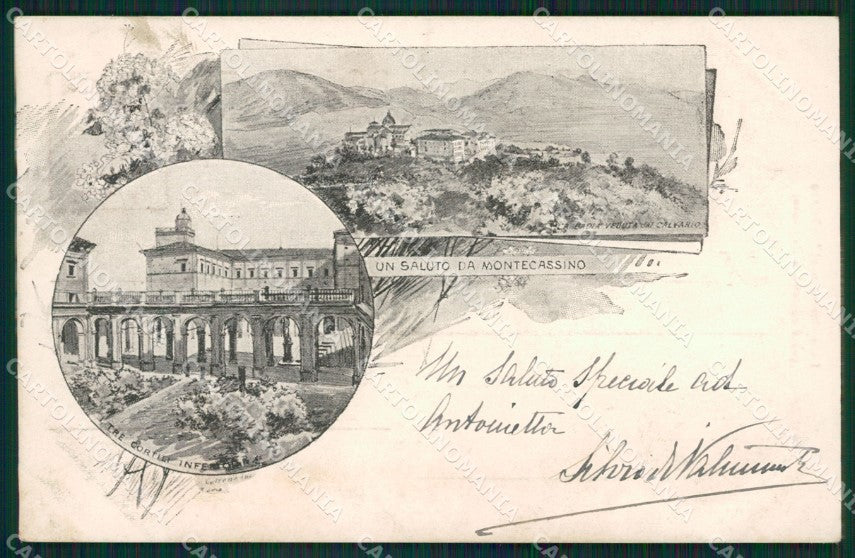 BADIA VEDUTA DAL CALVARIO
UN SALUTO DA MONTECASSINO
TRE CORTILI INFERIORI
Un saluto speciale ad
Antonietta
Silvio di
CARTOLINOMANIA